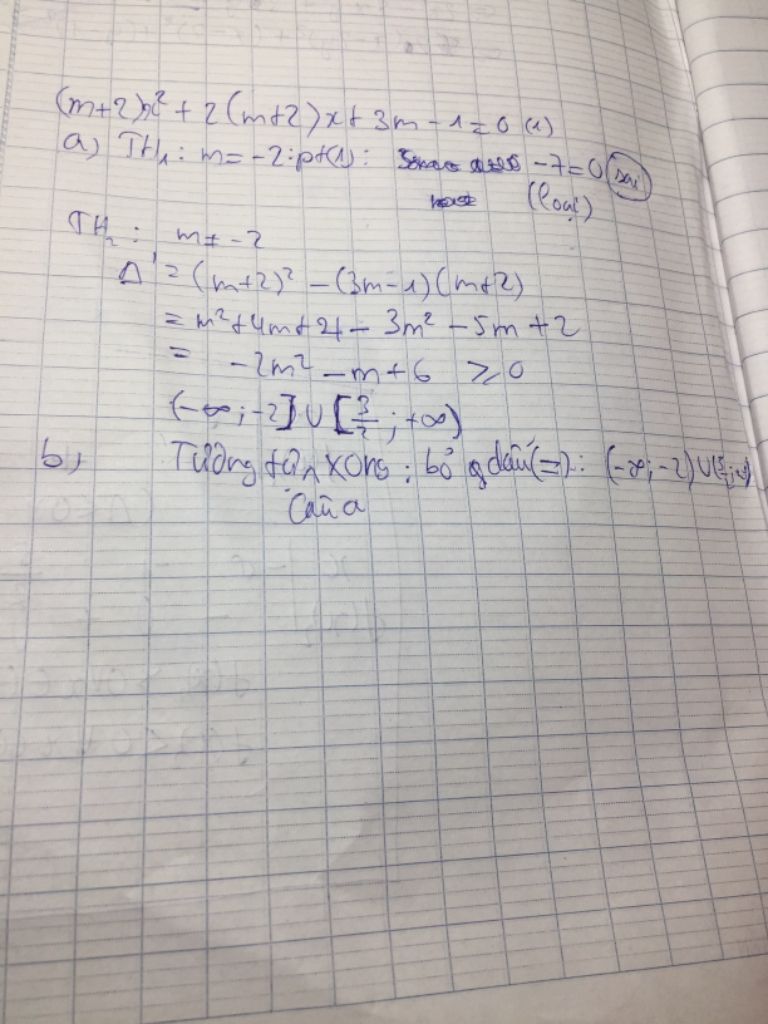 (m+2)x² + 2(m+2)x + 3m - 1 = 0 (1)
a) TH₁: m = -2: pt(1): -7 = 0 sai
(loại)
TH₂: m ≠ -2
Δ' = (m+2)² - (3m-1)(m+2)
= m² + 4m + 4 - 3m² - 5m + 2
= -2m² - m + 6 ≥ 0
(-∞; -2] ∪ [3/2; +∞)
b) Tương tự xong: bỏ dấu (=): (-∞; -2) ∪
câu a